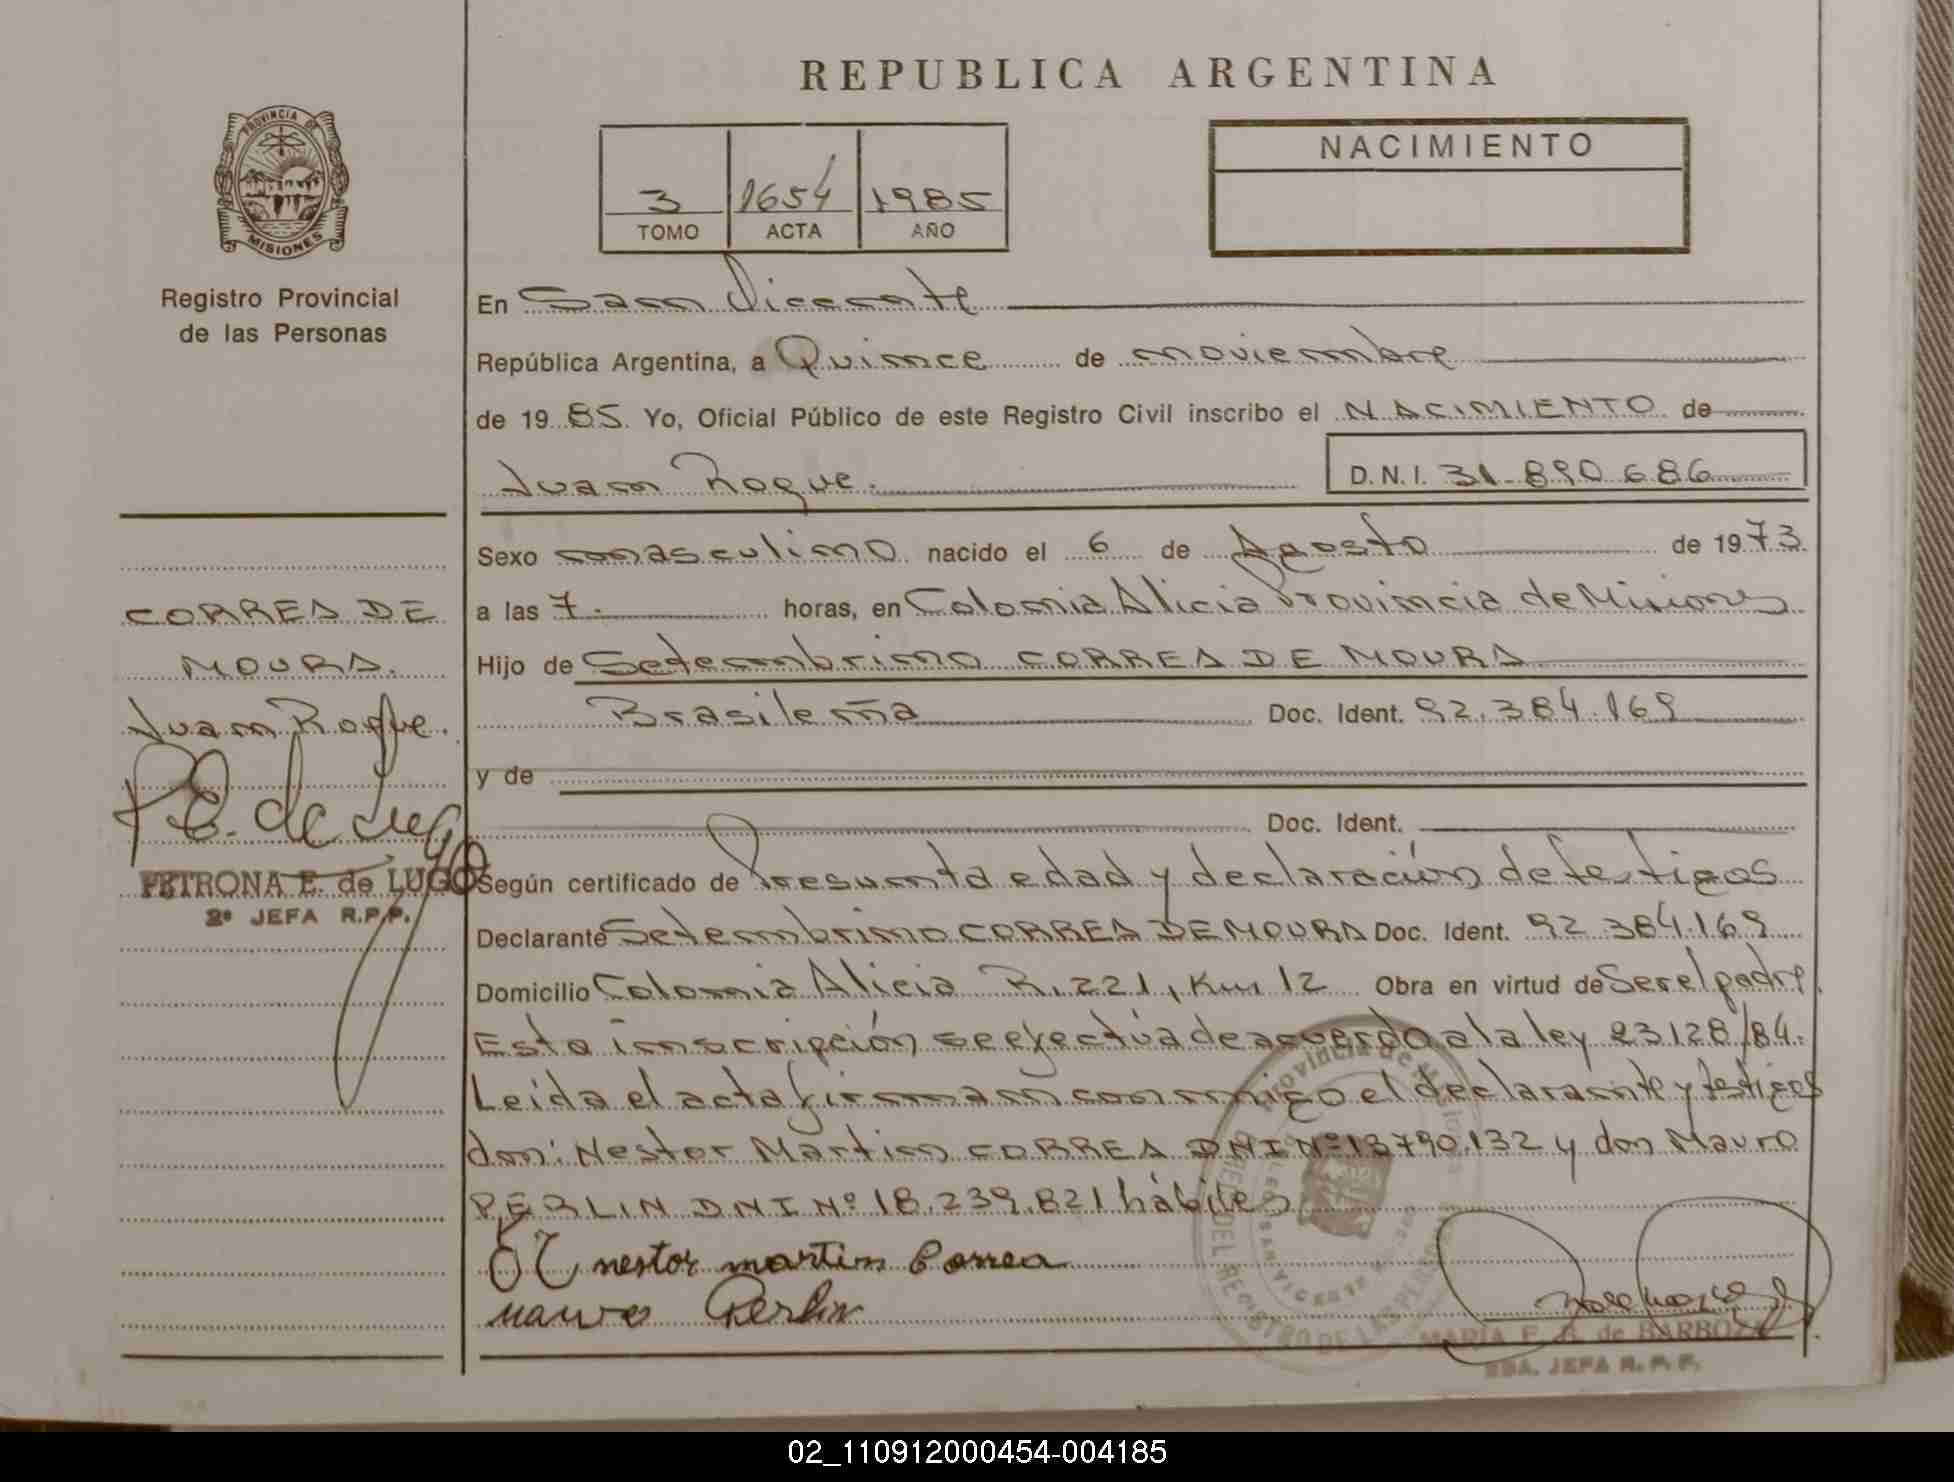 REPUBLICA ARGENTINA
PROVINCIA DE
MISIONES
Registro Provincial
de las Personas
3 1654 1985
TOMO ACTA AÑO
NACIMIENTO
En San Vicente
República Argentina, a Quince de noviembre
de 19 85. Yo, Oficial Público de este Registro Civil inscribo el NACIMIENTO de
Juan Roque.
D.N.I. 31.890.686
Sexo masculino nacido el 6 de Agosto de 1973
a las 7. horas, en Colonia Alicia Provincia de Misiones
Hijo de Setembrino CORREA DE MOURA
Brasileña Doc. Ident. 92.384.169
y de
Doc. Ident.
Según certificado de Presunta edad y declaración de testigos
Declarante Setembrino CORREA DE MOURA Doc. Ident. 92.384.169
Domicilio Colonia Alicia R. 221, Km 12 Obra en virtud de Ser el padre.
Esta inscripción se efectúa de acuerdo a la ley 23128/84.
Leída el acta firman conmigo el declarante y testigos
don: Nestor Martin CORREA DNI Nº 13790.132 y don Mauro
PERLIN DNI Nº 18.239.821 hábiles
nestor martin Correa
mauro Perlin
CORREA DE
MOURA.
Juan Roque.
P E. de Lugo
PETRONA E. de LUGO
2º JEFA R.P.P.
Provincia de Misiones
DEL REGISTRO DE LAS PERSONAS
SAN VICENTE
MARÍA E. B. de BARBOZA
JEFA R. P. P.
02_110912000454-004185